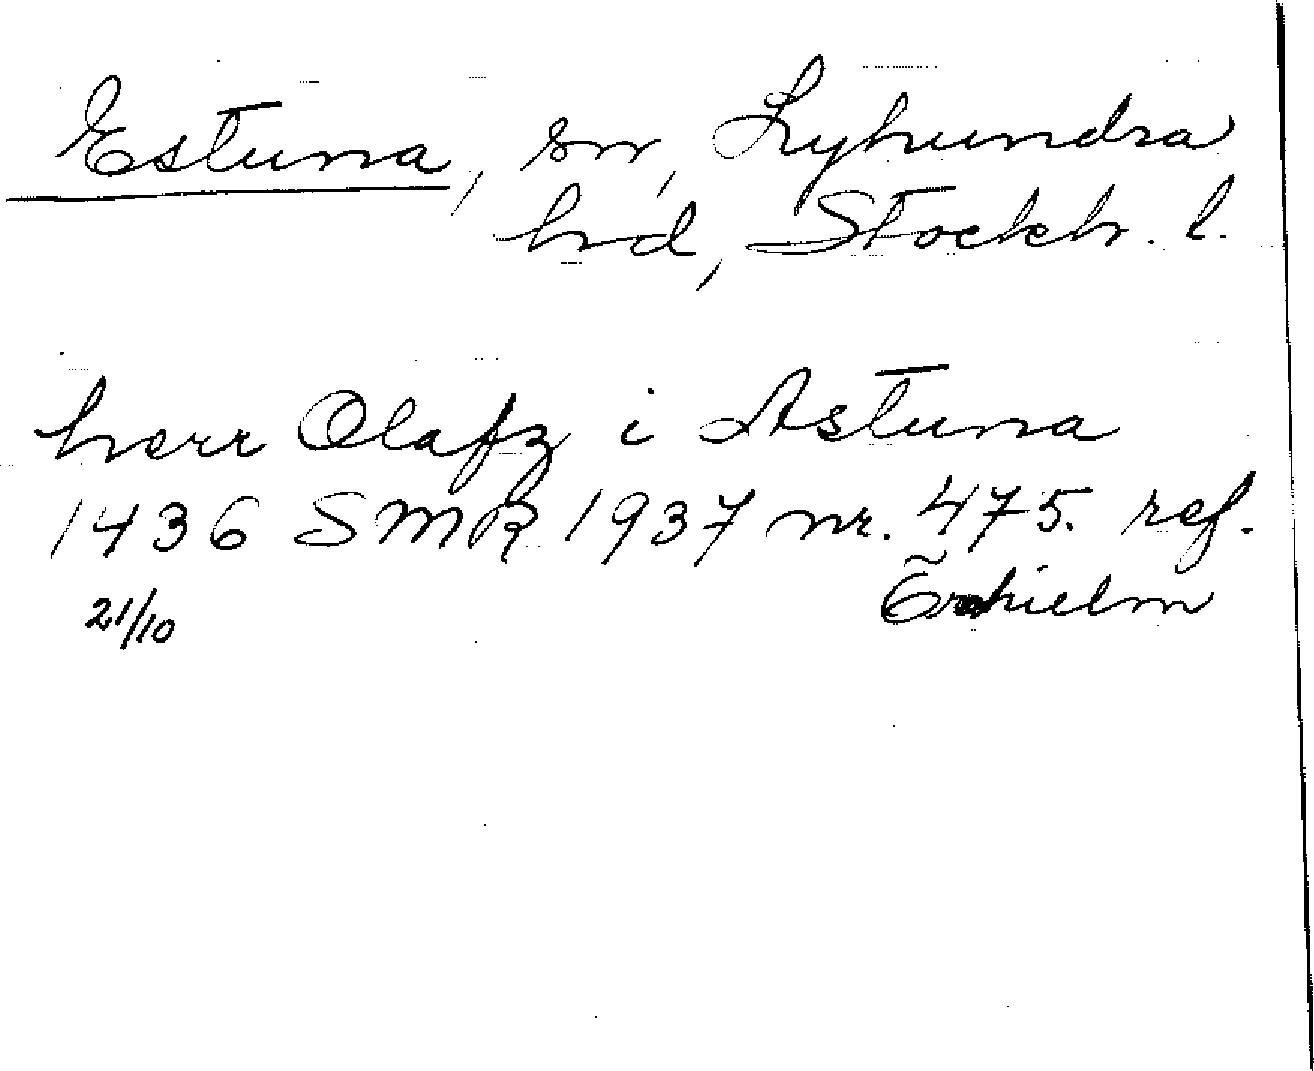 Estuna, sn, Lyhundra
hd, Stockh. l.
herr Olafz i Astuna
1436 SMR 1937 nr. 475. ref.
Örnhielm
21/10